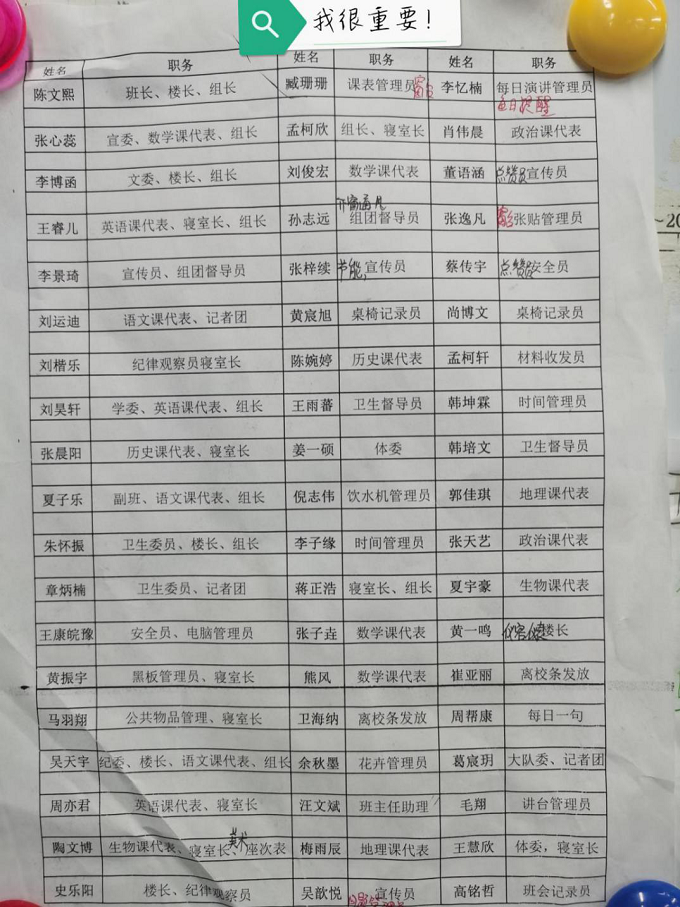 我很重要!
姓名 职务 姓名 职务 姓名 职务
陈文熙 班长、楼长、组长 臧珊珊 课表管理员 李忆楠 每日演讲管理员
每日提醒
张心蕊 宣委、数学课代表、组长 孟柯欣 组长、寝室长 肖伟晨 政治课代表
李博函 文委、楼长、组长 刘俊宏 数学课代表 董语涵 点赞员宣传员
王睿儿 英语课代表、寝室长、组长 孙志远 组团督导员 张逸凡 张贴管理员
李景琦 宣传员、组团督导员 张梓续 节能宣传员 蔡传宇 点赞员安全员
刘运迪 语文课代表、记者团 黄宸旭 桌椅记录员 尚博文 桌椅记录员
刘楷乐 纪律观察员寝室长 陈婉婷 历史课代表 孟柯轩 材料收发员
刘昊轩 学委、英语课代表、组长 王雨蕃 卫生督导员 韩坤霖 时间管理员
张晨阳 历史课代表、寝室长 姜一硕 体委 韩培文 卫生督导员
夏子乐 副班、语文课代表、组长 倪志伟 饮水机管理员 郭佳琪 地理课代表
朱怀振 卫生委员、楼长、组长 李子缘 时间管理员 张天艺 政治课代表
章炳楠 卫生委员、记者团 蒋正浩 寝室长、组长 夏宇豪 生物课代表
王康皖豫 安全员、电脑管理员 张子垚 数学课代表 黄一鸣 楼长
黄振宇 黑板管理员、寝室长 熊风 数学课代表 崔亚丽 离校条发放
马羽翔 公共物品管理、寝室长 卫海纳 离校条发放 周帮康 每日一句
吴天宇 纪委、楼长、语文课代表、组长 余秋墨 花卉管理员 葛宸玥 大队委、记者团
周亦君 英语课代表、寝室长 汪文斌 班主任助理 毛翔 讲台管理员
美术
陶文博 生物课代表、寝室长、座次表 梅雨辰 地理课代表 王慧欣 体委，寝室长
史乐阳 楼长、纪律观察员 吴歆悦 宣传员 高铭哲 班会记录员